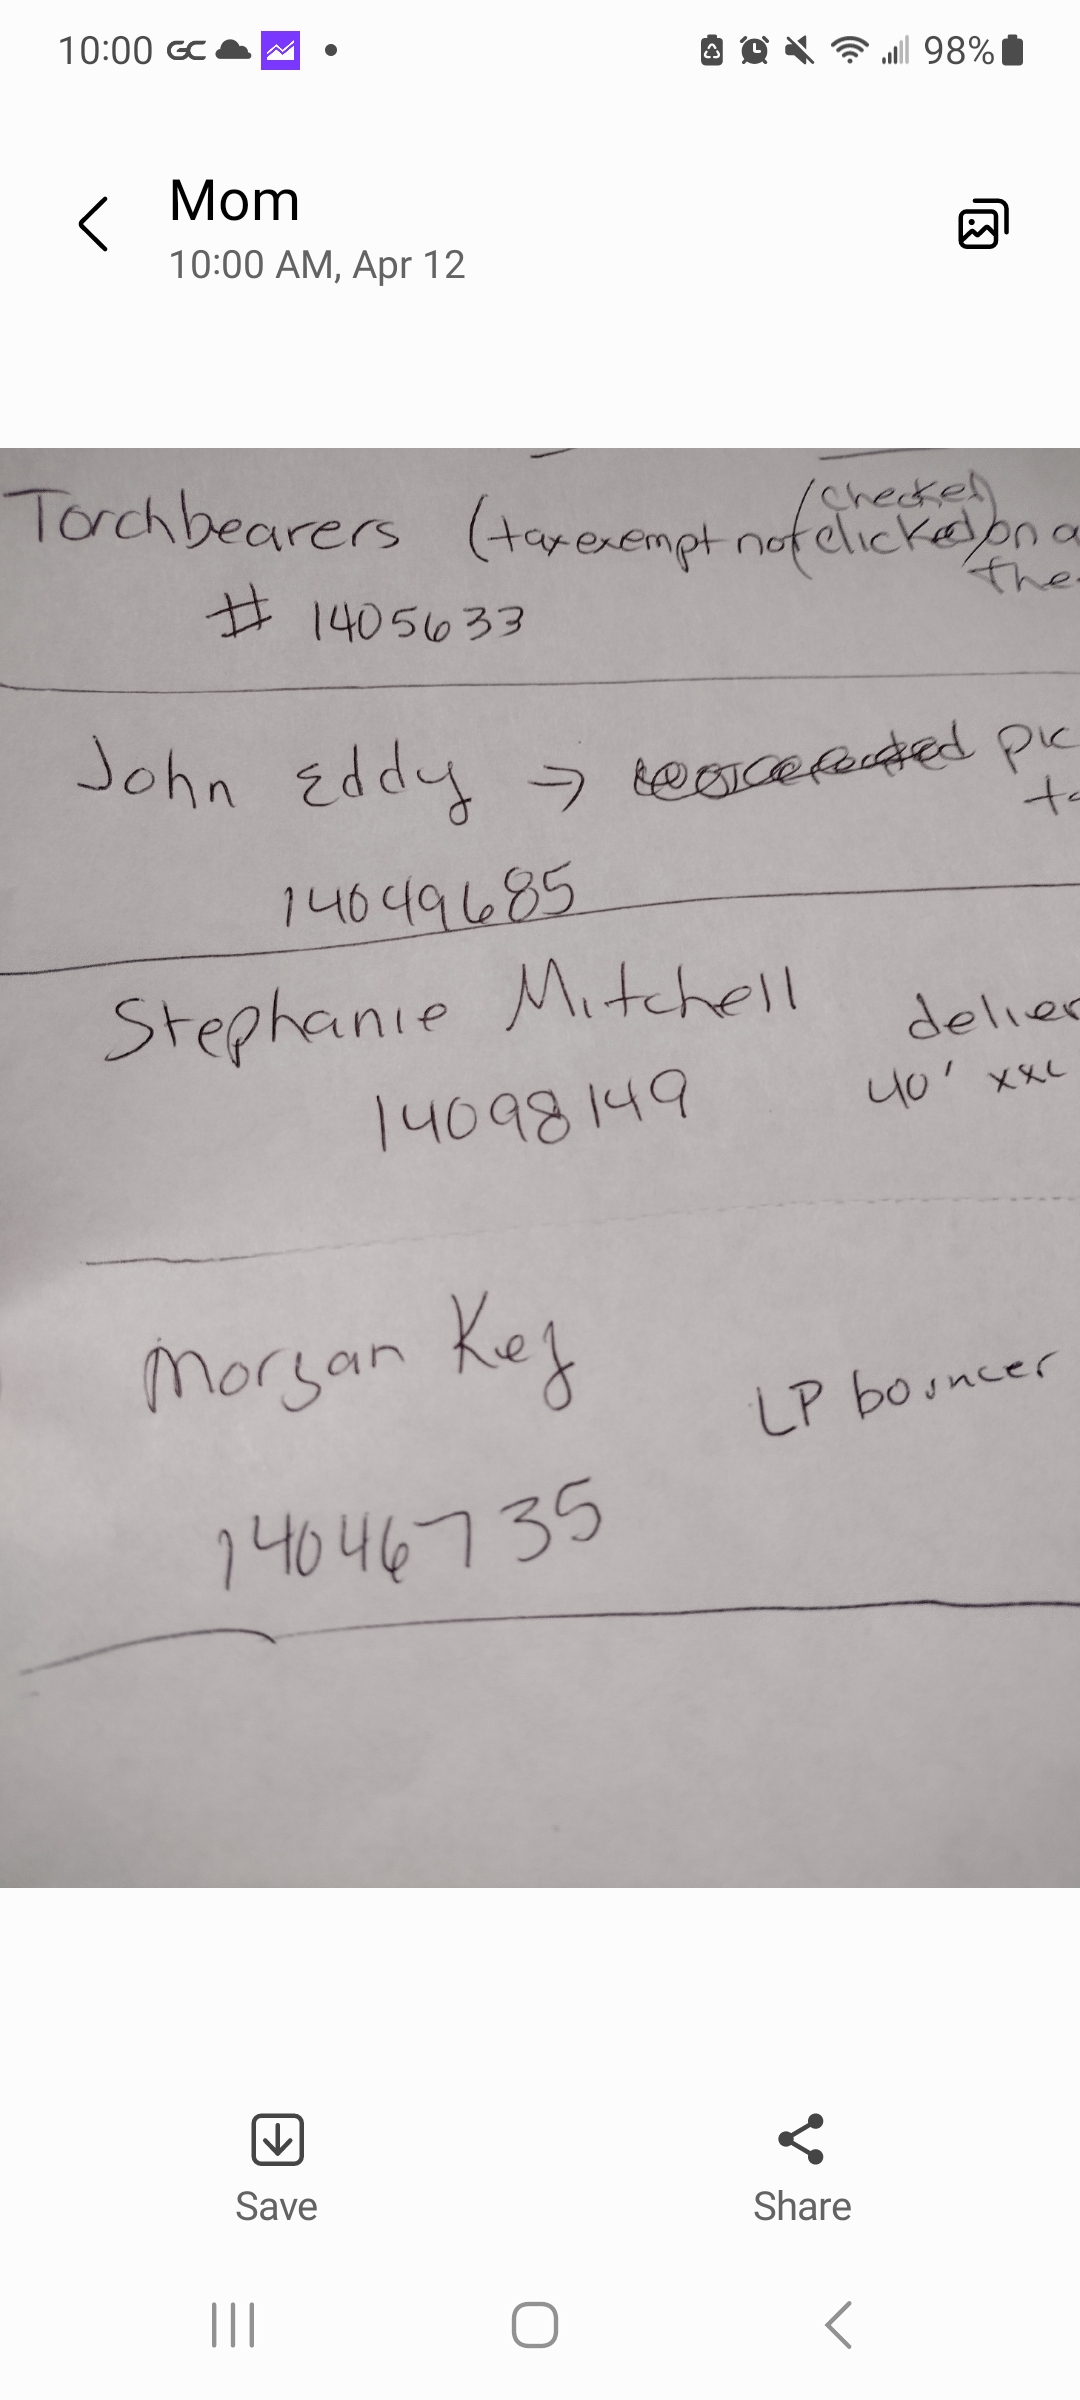 10:00 GC
98%
Mom
10:00 AM, Apr 12
(checked)
Torchbearers (tax exempt not clicked on a
the
# 1405633
John Eddy → pic
14049685
Stephanie Mitchell delier
14098149 40' xxl
Morgan Key
LP bouncer
14046735
Save Share